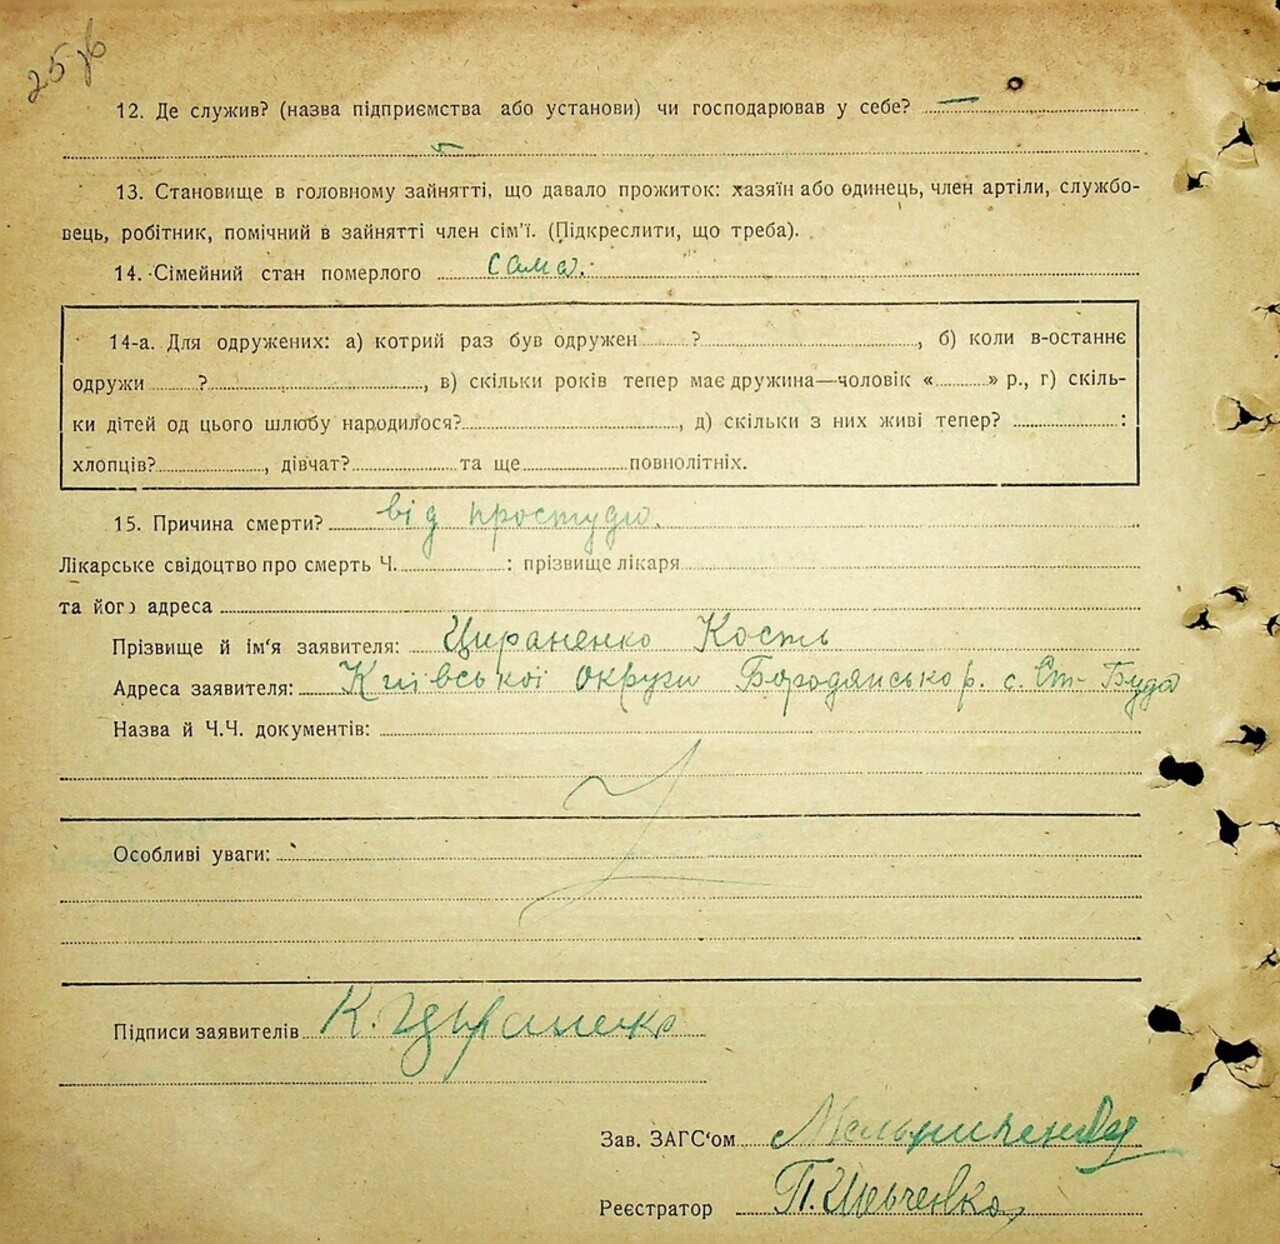 12. Де служив? (назва підприємства або установи) чи господарював у себе? —
13. Становище в головному зайнятті, що давало прожиток: хазяїн або одинець, член артілі, службо-
вець, робітник, помічний в зайнятті член сім'ї. (Підкреслити, що треба).
14. Сімейний стан померлого сама.
14-а. Для одружених: а) котрий раз був одружен ? , б) коли в-останнє
одружи ? , в) скільки років тепер має дружина—чоловік « » р., г) скіль-
ки дітей од цього шлюбу народилося? , д) скільки з них живі тепер? :
хлопців? , дівчат? та ще повнолітніх.
15. Причина смерти? від простуди.
Лікарське свідоцтво про смерть Ч. : прізвище лікаря
та його адреса
Прізвище й ім'я заявителя: Цираненко Кость
Адреса заявителя: Київської округи Бородянсько р. с. Ст- Буда
Назва й Ч.Ч. документів:
Особливі уваги:
Підписи заявителів К.
Зав. ЗАГС'ом
Реєстратор П. Шевченко